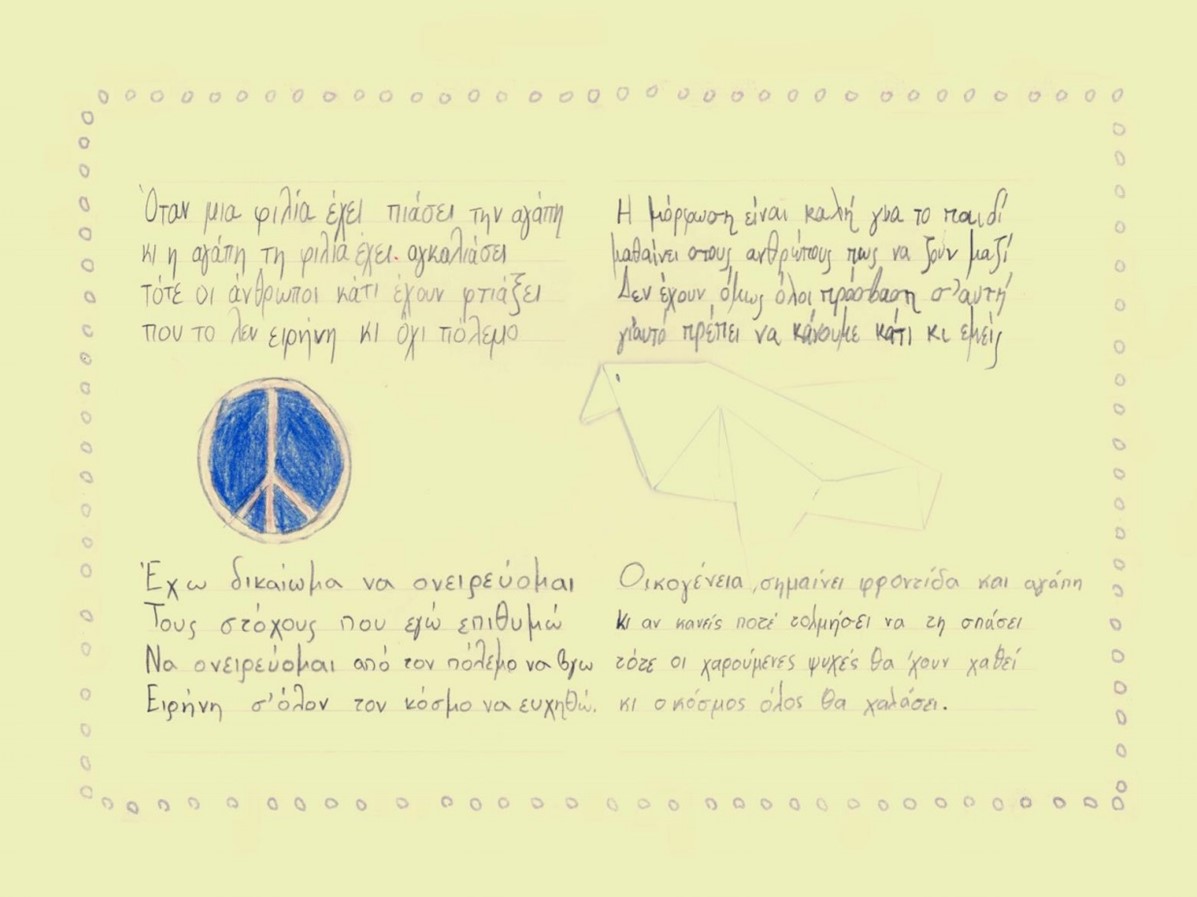 Όταν μια φιλία έχει πιάσει την αγάπη
κι η αγάπη τη φιλία έχει αγκαλιάσει
τότε οι άνθρωποι κάτι έχουν φτιάξει
που το λεν ειρήνη κι όχι πόλεμο
Η μόρφωση είναι καλή για το παιδί
μαθαίνει στους ανθρώπους πως να ζουν μαζί
Δεν έχουν όμως όλοι πρόσβαση σ'αυτή
γι'αυτό πρέπει να κάνουμε κάτι κι εμείς
Έχω δικαίωμα να ονειρεύομαι
Τους στόχους που εγώ επιθυμώ
Να ονειρεύομαι από τον πόλεμο να βγω
Ειρήνη σ'όλον τον κόσμο να ευχηθώ.
Οικογένεια, σημαίνει φροντίδα και αγάπη
κι αν κανείς ποτέ τολμήσει να τη σπάσει
τότε οι χαρούμενες ψυχές θα 'χουν χαθεί
κι ο κόσμος όλος θα χαλάσει.